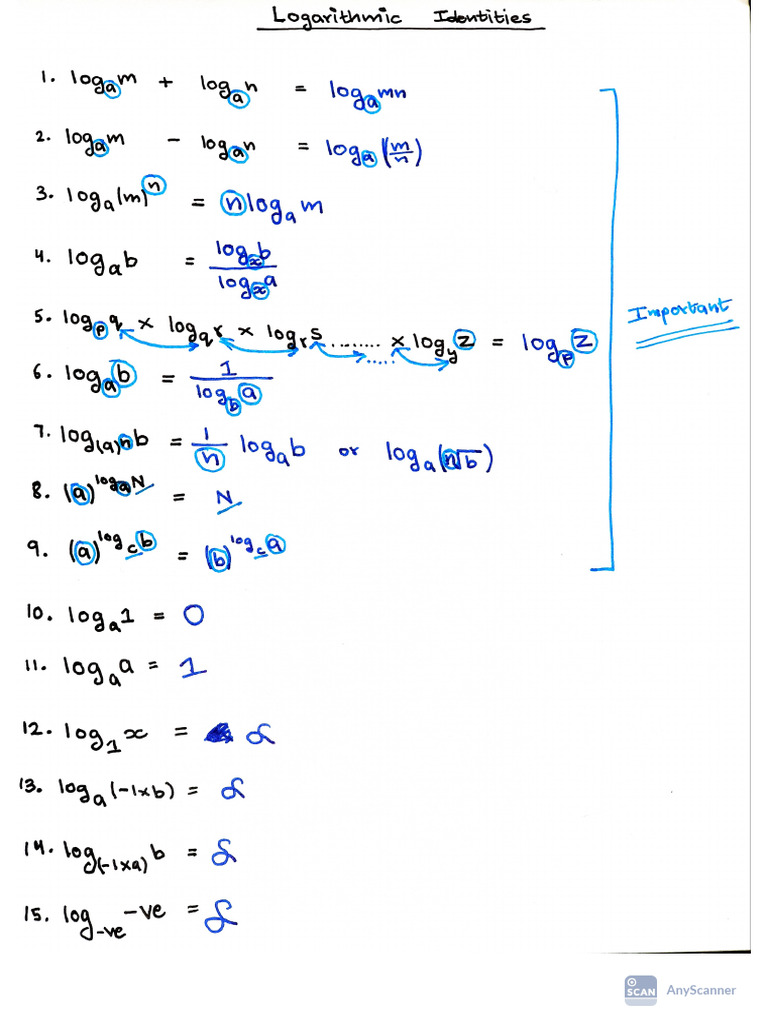 Logarithmic Identities
1. logₐm + logₐn = logₐmn
2. logₐm - logₐn = logₐ(m/n)
3. logₐ(m)ⁿ = n logₐm
4. logₐb = logₓb / logₓa
5. log_p q × log_q r × log_r s ........ × log_y z = log_p z
.....
Important
6. logₐb = 1 / log_b a
7. log_(a)n b = 1/n logₐb or logₐ(ⁿ√b)
8. (a)^logₐN = N
9. (a)^log_c b = (b)^log_c a
10. logₐ1 = 0
11. logₐa = 1
12. log₁x = α
13. logₐ(-1×b) = α
14. log_(-1×a) b = α
15. log_-ve -ve = α
SCAN AnyScanner